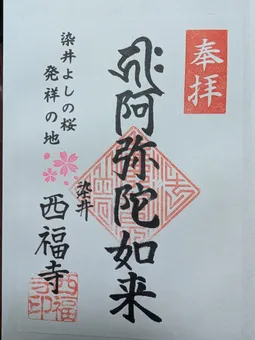 奉拝
阿弥陀如来
染井よしの桜
発祥の地
染井
西福寺
西福
寺印